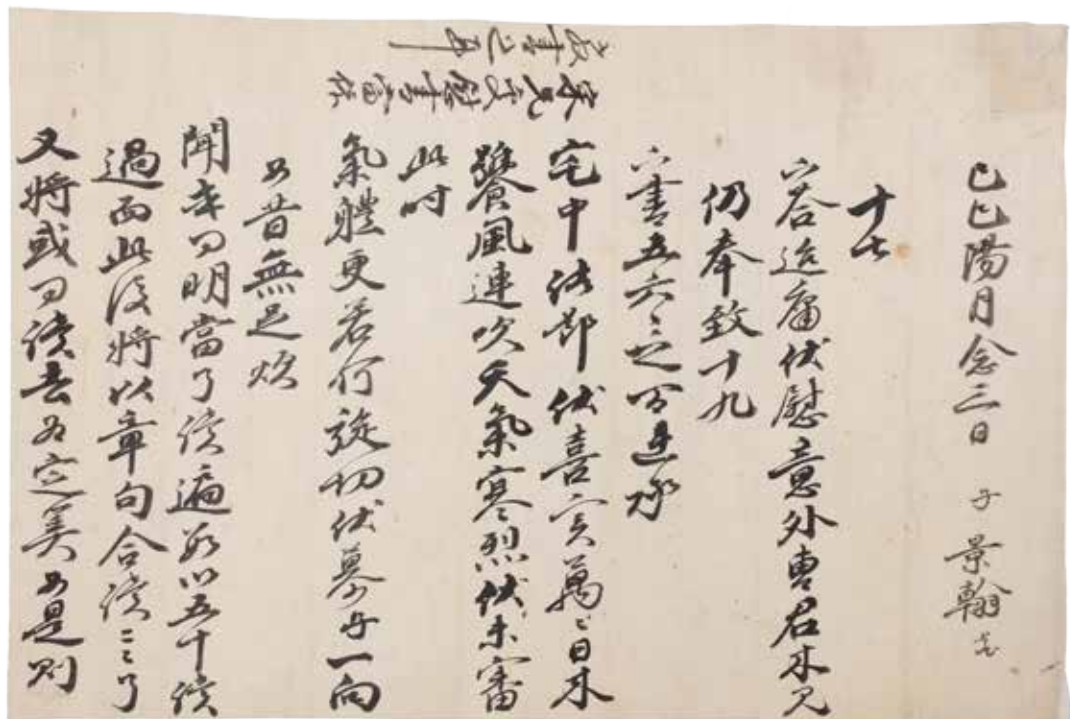 己巳陽月念三日 子 景翰
十七
下答追庸伏慰意外曹君來見
仍奉致十九
下書五六之間連承
宅中諸節伏喜實萬〻日來
饕風連吹天氣寒烈伏未審
此時
氣體更若何旋切伏慕子一向
如昔無足煩
聞幸可明當了讀遍數以五十讀
過而此後將以章句合讀〻了
又將或問讀去爲定矣如是則